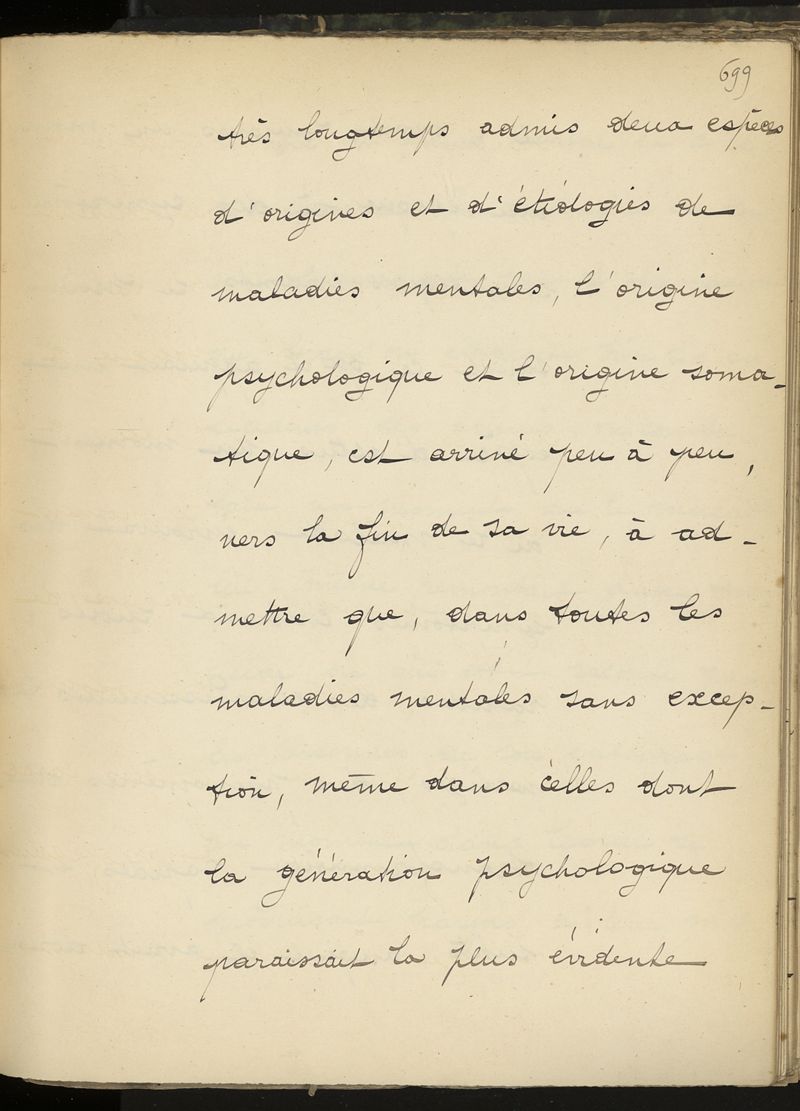 699
très longtemps admis deux espèces
d'origines et d'étiologies de
maladies mentales, l'origine
psychologique et l'origine soma-
tique, est arrivé peu à peu,
vers la fin de sa vie, à ad-
mettre que, dans toutes les
maladies mentales sans excep-
tion, même dans celles dont
la génération psychologique
paraissait la plus évidente